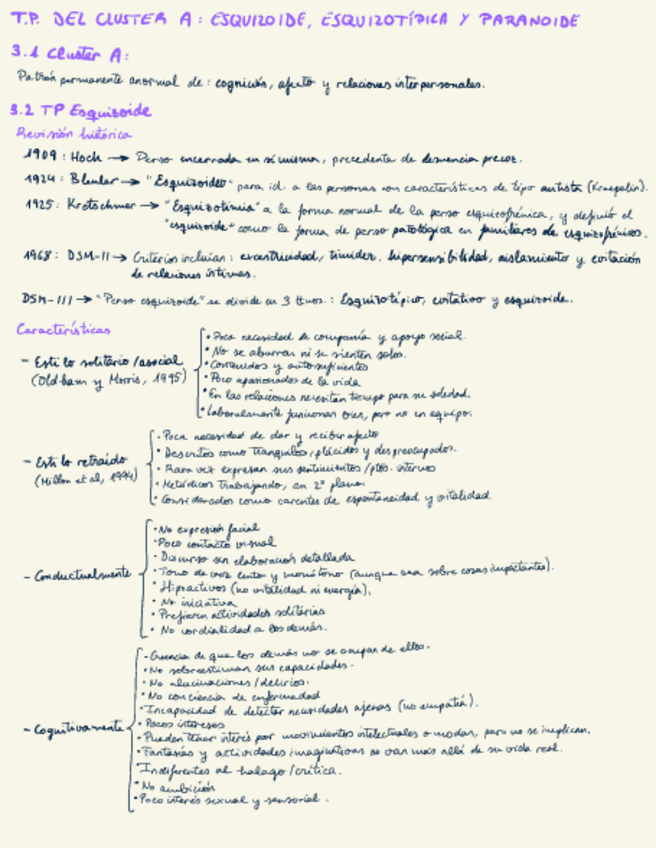 T.P. DEL CLUSTER A: ESQUIZOIDE, ESQUIZOTÍPICA Y PARANOIDE
3.1 Cluster A:
Patrón permanente anormal de: cognición, afecto y relaciones interpersonales.
3.2 TP Esquizoide
Revisión histórica
1909: Hoch → Perso encerrada en si misma, precedente de demencia precoz.
1924: Bleuler → "Esquizoideo" para id. a las personas con características de tipo autista (Kraepelin).
1925: Kretschmer → "Esquizotimia" a la forma normal de la perso esquizofrénica, y definió el
"esquizoide" como la forma de perso patológica en familiares de esquizofrénicos.
1968: DSM-II → Criterios incluían: excentricidad, timidez, hipersensibilidad, aislamiento y evitación
de relaciones íntimas.
DSM-III → "Perso esquizoide" se divide en 3 ttnos.: Esquizotípico, evitativo y esquizoide.
Características
- Estilo solitario/asocial
(Oldham y Morris, 1995)
• Poca necesidad de compañía y apoyo social.
• No se aburren ni se sienten solos.
• Contenidos y autosuficientes
• Poco apasionados de la vida
• En las relaciones necesitan tiempo para su soledad.
• Laboralmente funcionan bien, pero no en equipo.
- Estilo retraído
(Millon et al, 1994)
• Poca necesidad de dar y recibir afecto
• Descritos como tranquilos, plácidos y despreocupados.
• Rara vez expresan sus sentimientos/ptos. internos
• Metódicos trabajando, en 2º plano.
• Considerados como carentes de espontaneidad y vitalidad
- Conductualmente
• No expresión facial
• Poco contacto visual
• Discurso sin elaboración detallada
• Tono de voz lento y monótono (aunque sea sobre cosas impactantes).
• Hipoactivos (no vitalidad ni energía).
• No iniciativa
• Prefieren actividades solitarias
• No cordialidad a los demás.
- Cognitivamente
• Creencia de que los demás no se ocupan de ellos.
• No sobreestiman sus capacidades.
• No alucinaciones/delirios.
• No conciencia de enfermedad
• Incapacidad de detectar necesidades ajenas (no empatía).
• Pocos intereses
• Pueden tener interés por movimientos intelectuales o modas, pero no se implican.
• Fantasías y actividades imaginativas no van más allá de su vida real.
• Indiferentes al halago/crítica.
• No ambición
• Poco interés sexual y sensorial.